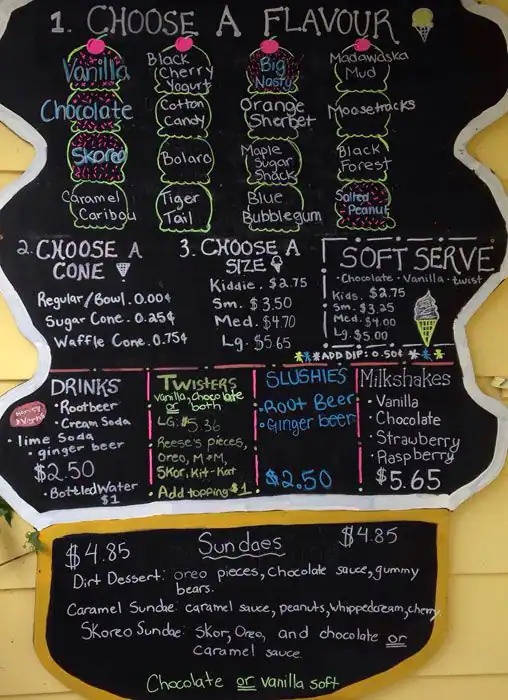 1. CHOOSE A FLAVOUR
Vanilla
Chocolate
Skoreo
Caramel
Caribou
Black
Cherry
Yogurt
Cotton
Candy
Bolaro
Tiger
Tail
Big
Nasty
Orange
Sherbet
Maple
Sugar
Shack
Blue
Bubblegum
Madawaska
Mud
Moosetracks
Black
Forest
Salted
Peanut
2. CHOOSE A
CONE
Regular/Bowl. 0.00¢
Sugar Cone. 0.25¢
Waffle Cone. 0.75¢
3. CHOOSE A
SIZE
Kiddie. $2.75
Sm. $3.50
Med. $4.70
Lg. $5.65
SOFT SERVE
· Chocolate · Vanilla · twist
Kids. $2.75
Sm. $3.25
Med. $4.00
Lg. $5.00
ADD DIP: 0.50¢
DRINKS
· Rootbeer
· Cream Soda
· lime Soda
· ginger beer
$2.50
· Bottled Water
$1
TWISTERS
vanilla, chocolate
or both
LG: $5.36
Reese's pieces,
Oreo, M+M,
Skor, Kit-Kat
Add topping $1
SLUSHIES
· Root Beer
· Ginger beer
$2.50
Milkshakes
· Vanilla
· Chocolate
· Strawberry
· Raspberry
$5.65
$4.85 Sundaes $4.85
Dirt Dessert: oreo pieces, chocolate sauce, gummy
bears.
Caramel Sundae: caramel sauce, peanuts, whippedcream, cherry
Skoreo Sundae: Skor, Oreo, and chocolate or
caramel sauce
Chocolate or vanilla soft